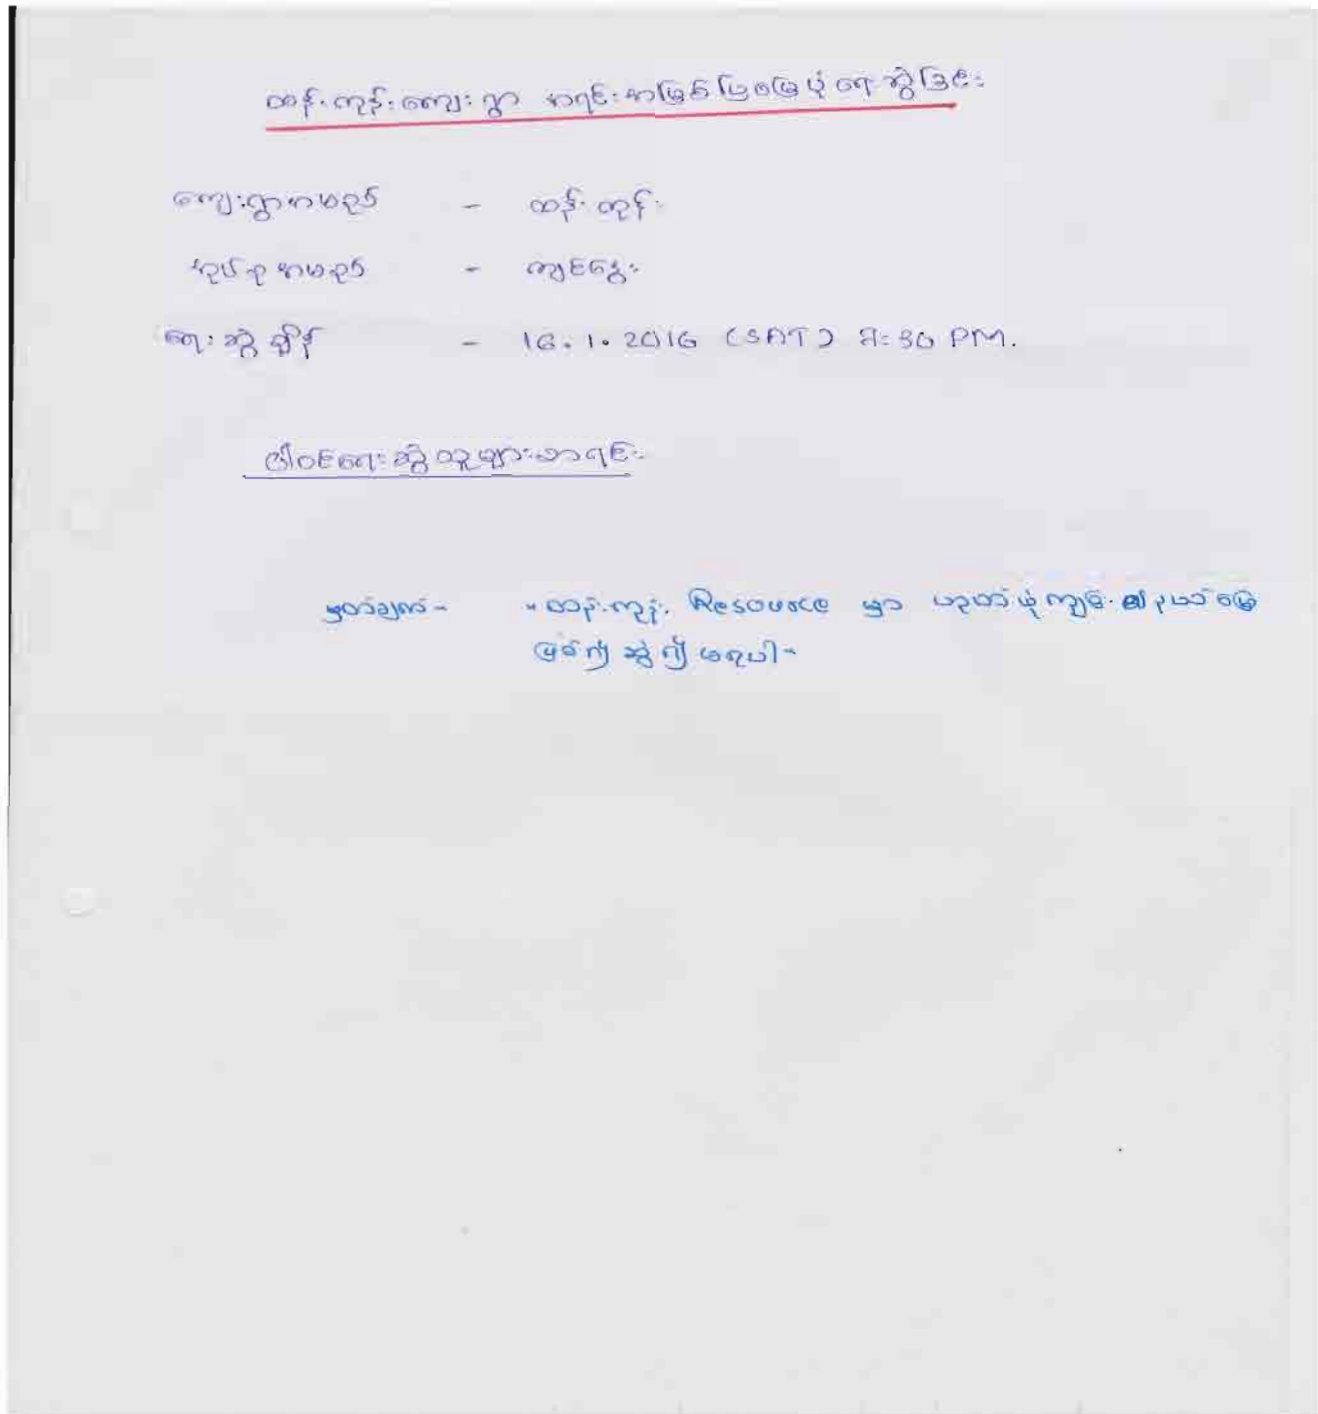 ထန်းကုန်းကျေးရွာ အရင်းအမြစ်ပြမြေပုံရေးဆွဲခြင်း
ကျေးရွာအမည် - ထန်းကုန်း
အုပ်စုအမည် - ကျင်ငွေး
ရေးဆွဲချိန် - 16.1.2016 (SAT) 2:30 PM.
ပါဝင်ရေးဆွဲသူများစာရင်း
မှတ်ချက် - " ထန်းကုန်း Resource မှာ ယုတ်ဖို့ကျမ်း နယ်မြေ
ဖြစ်လို့ ဆွဲလို့မရပါ "